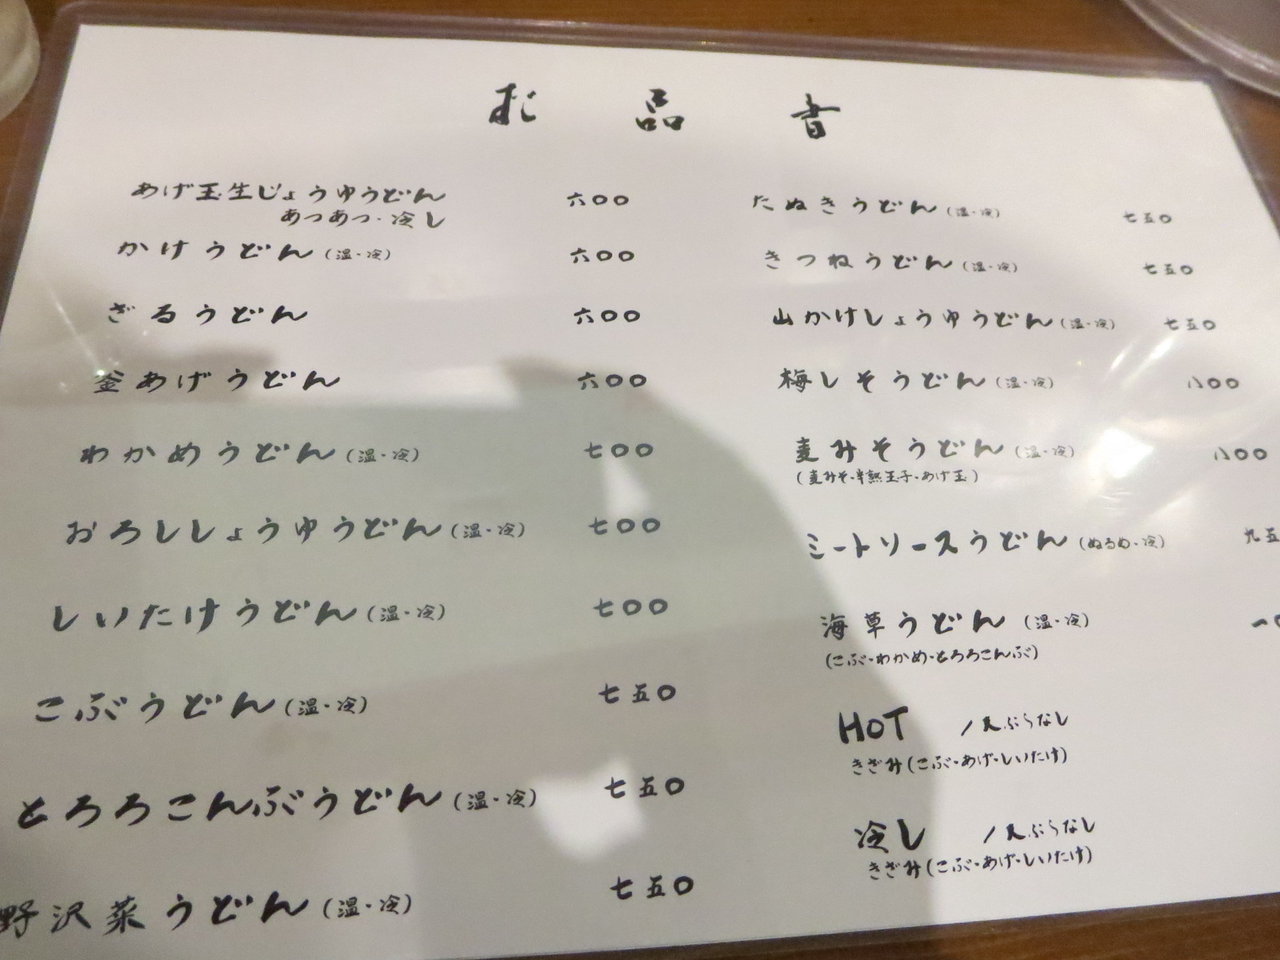 お品書
あげ玉生じょうゆうどん 六〇〇
あつあつ・冷し
かけうどん(温・冷) 六〇〇
ざるうどん 六〇〇
釜あげうどん 六〇〇
わかめうどん(温・冷) 七〇〇
おろししょうゆうどん(温・冷) 七〇〇
しいたけうどん(温・冷) 七〇〇
こぶうどん(温・冷) 七五〇
とろろこんぶうどん(温・冷) 七五〇
野沢菜うどん(温・冷) 七五〇
たぬきうどん(温・冷) 七五〇
きつねうどん(温・冷) 七五〇
山かけしょうゆうどん(温・冷) 七五〇
梅しそうどん(温・冷) 八〇〇
麦みそうどん(温・冷) 八〇〇
(麦みそ・半熟玉子・あげ玉)
ミートソースうどん(ぬるめ・冷) 九五
海草うどん(温・冷) 一〇
(こぶ・わかめ・とろろこんぶ)
HOT /天ぷらなし
きざみ(こぶ・あげ・しいたけ)
冷し /天ぷらなし
きざみ(こぶ・あげ・しいたけ)